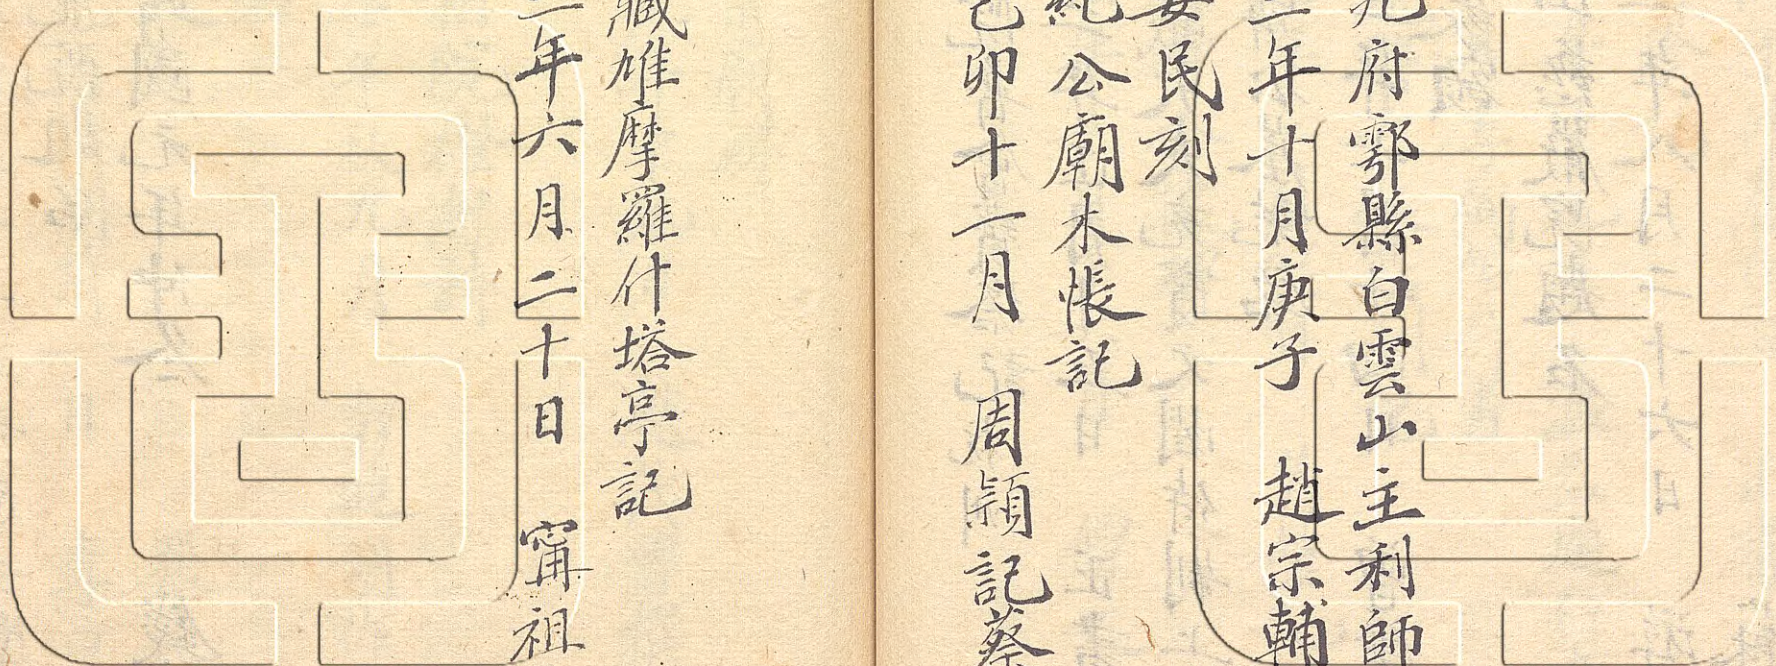 府鄠縣白雲山主利師
二年十月庚子 趙宗輔
安民刻
純公廟木帳記
己卯十一月 周穎記蔡
藏雄摩羅什塔亭記
年六月二十日 甯祖